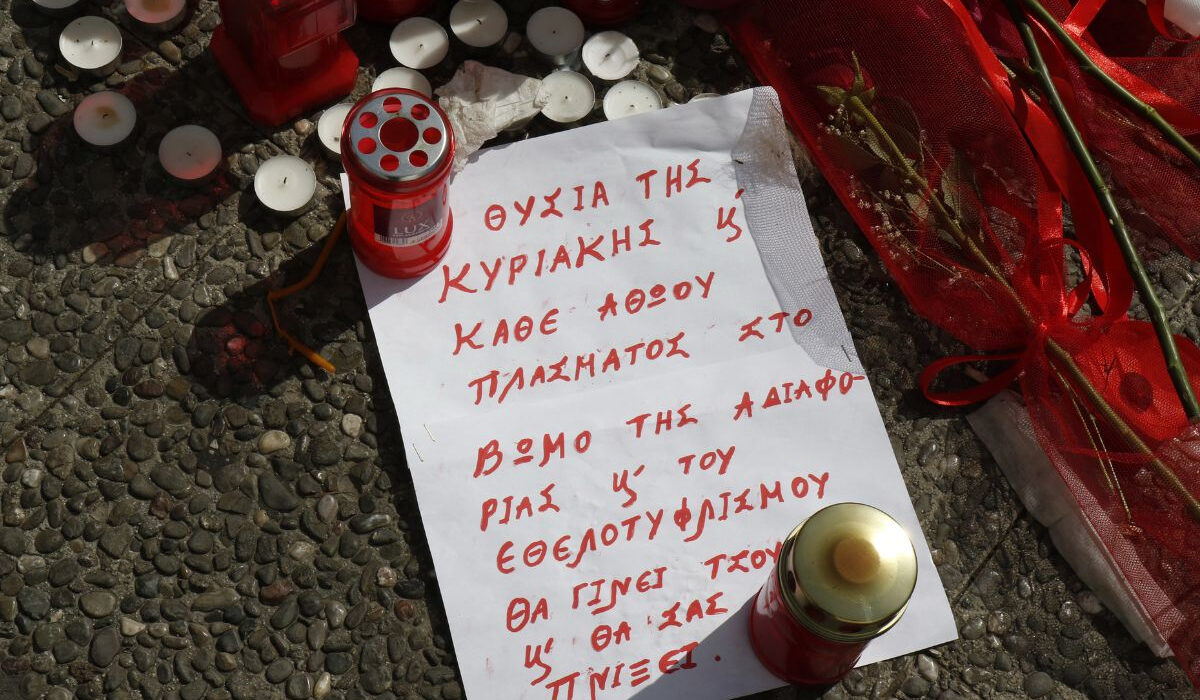 LUX
ΘΥΣΙΑ ΤΗΣ
ΚΥΡΙΑΚΗΣ ϗ
ΚΑΘΕ ΑΘΩΟΥ
ΠΛΑΣΜΑΤΟΣ ΣΤΟ
ΒΩΜΟ ΤΗΣ ΑΔΙΑΦΟ-
ΡΙΑΣ ϗ ΤΟΥ
ΕΘΕΛΟΤΥΦΛΙΣΜΟΥ
ΘΑ ΓΙΝΕΙ
ϗ ΘΑ ΣΑΣ
ΠΝΙΞΕΙ.